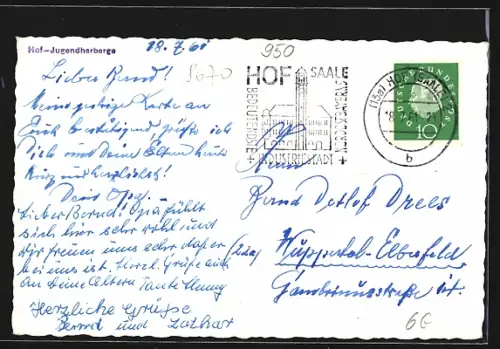 Hof-Jugendherberge
18.7.61
950
5670
Lieber Bernd!
Meine gestrige Karte an
Euch bestätigend, grüße ich
Dich und Deine Eltern heute
kurz und herzlichst!
Dein Opa.
Lieber Bernd! Opa fühlt
sich hier sehr wohl und
wir freuen uns sehr daß er
bei uns ist. Herzl. Grüße auch
an Deine Eltern Tante
Herzliche Grüße
Bernd und Lothar
HOF SAALE
BEDEUTENDE
INDUSTRIESTADT
(13a) HOF (SAALE)
b
DEUTSCHE BUNDESPOST
10
Bernd Detlef Drees
(22a) Wuppertal-Elberfeld
Gambrinusstraße
6G